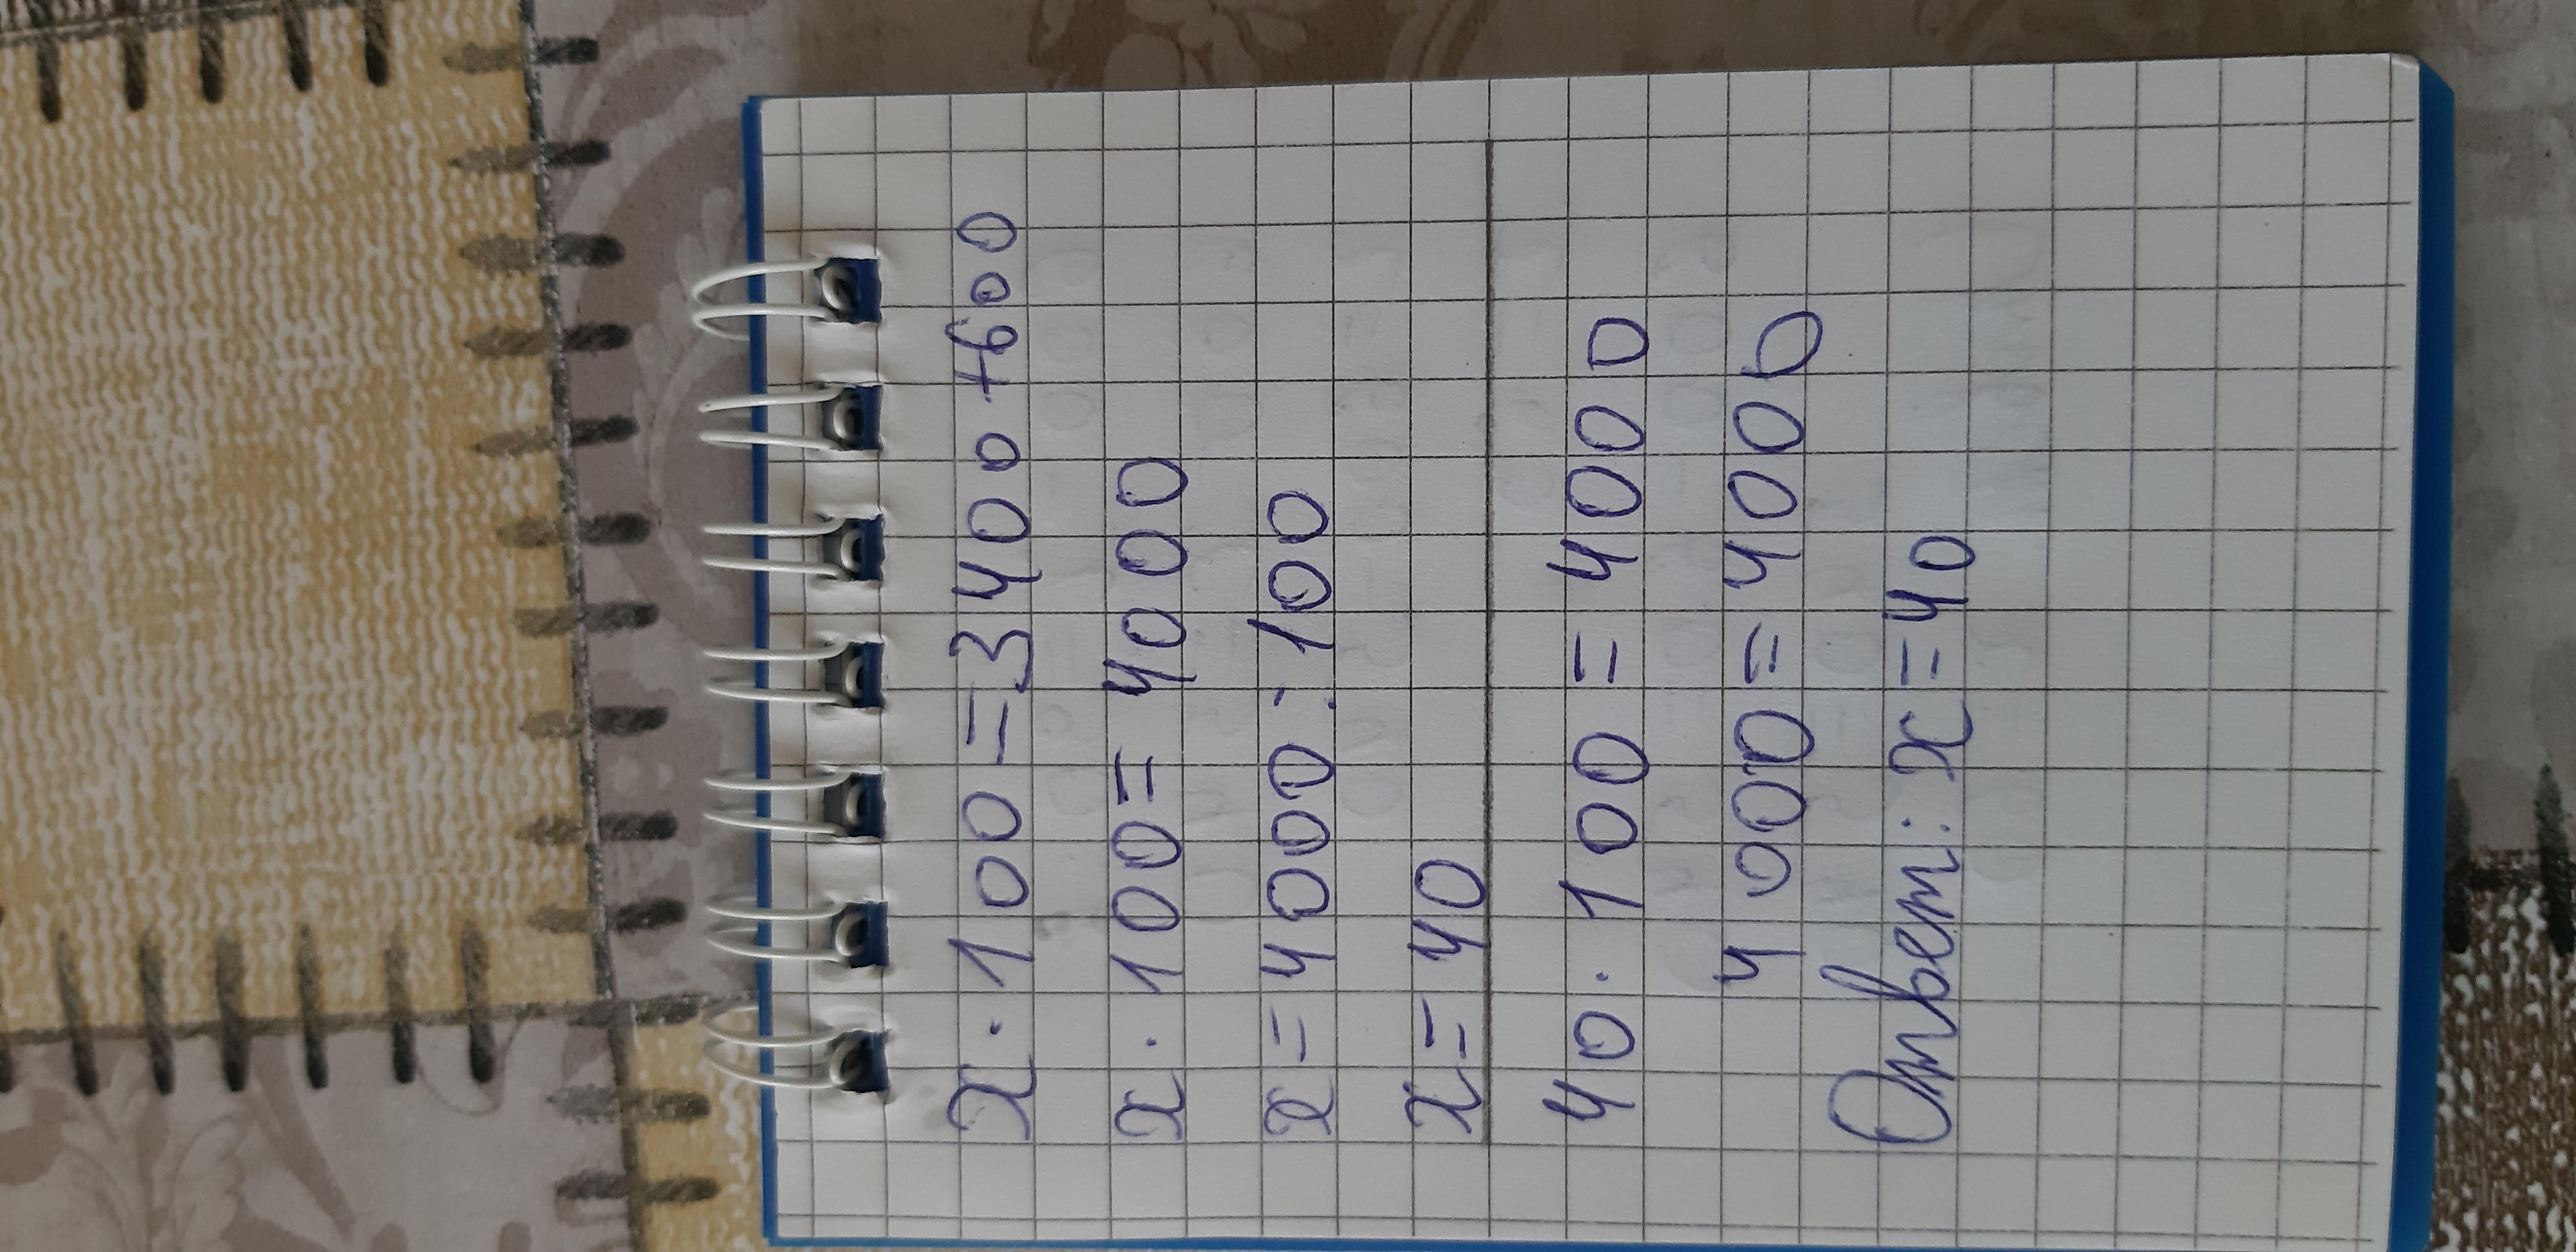 x · 100 = 3400 + 600
x · 100 = 4000
x = 4000 : 100
x = 40
40 · 100 = 4000
4000 = 4000
Ответ: x = 40